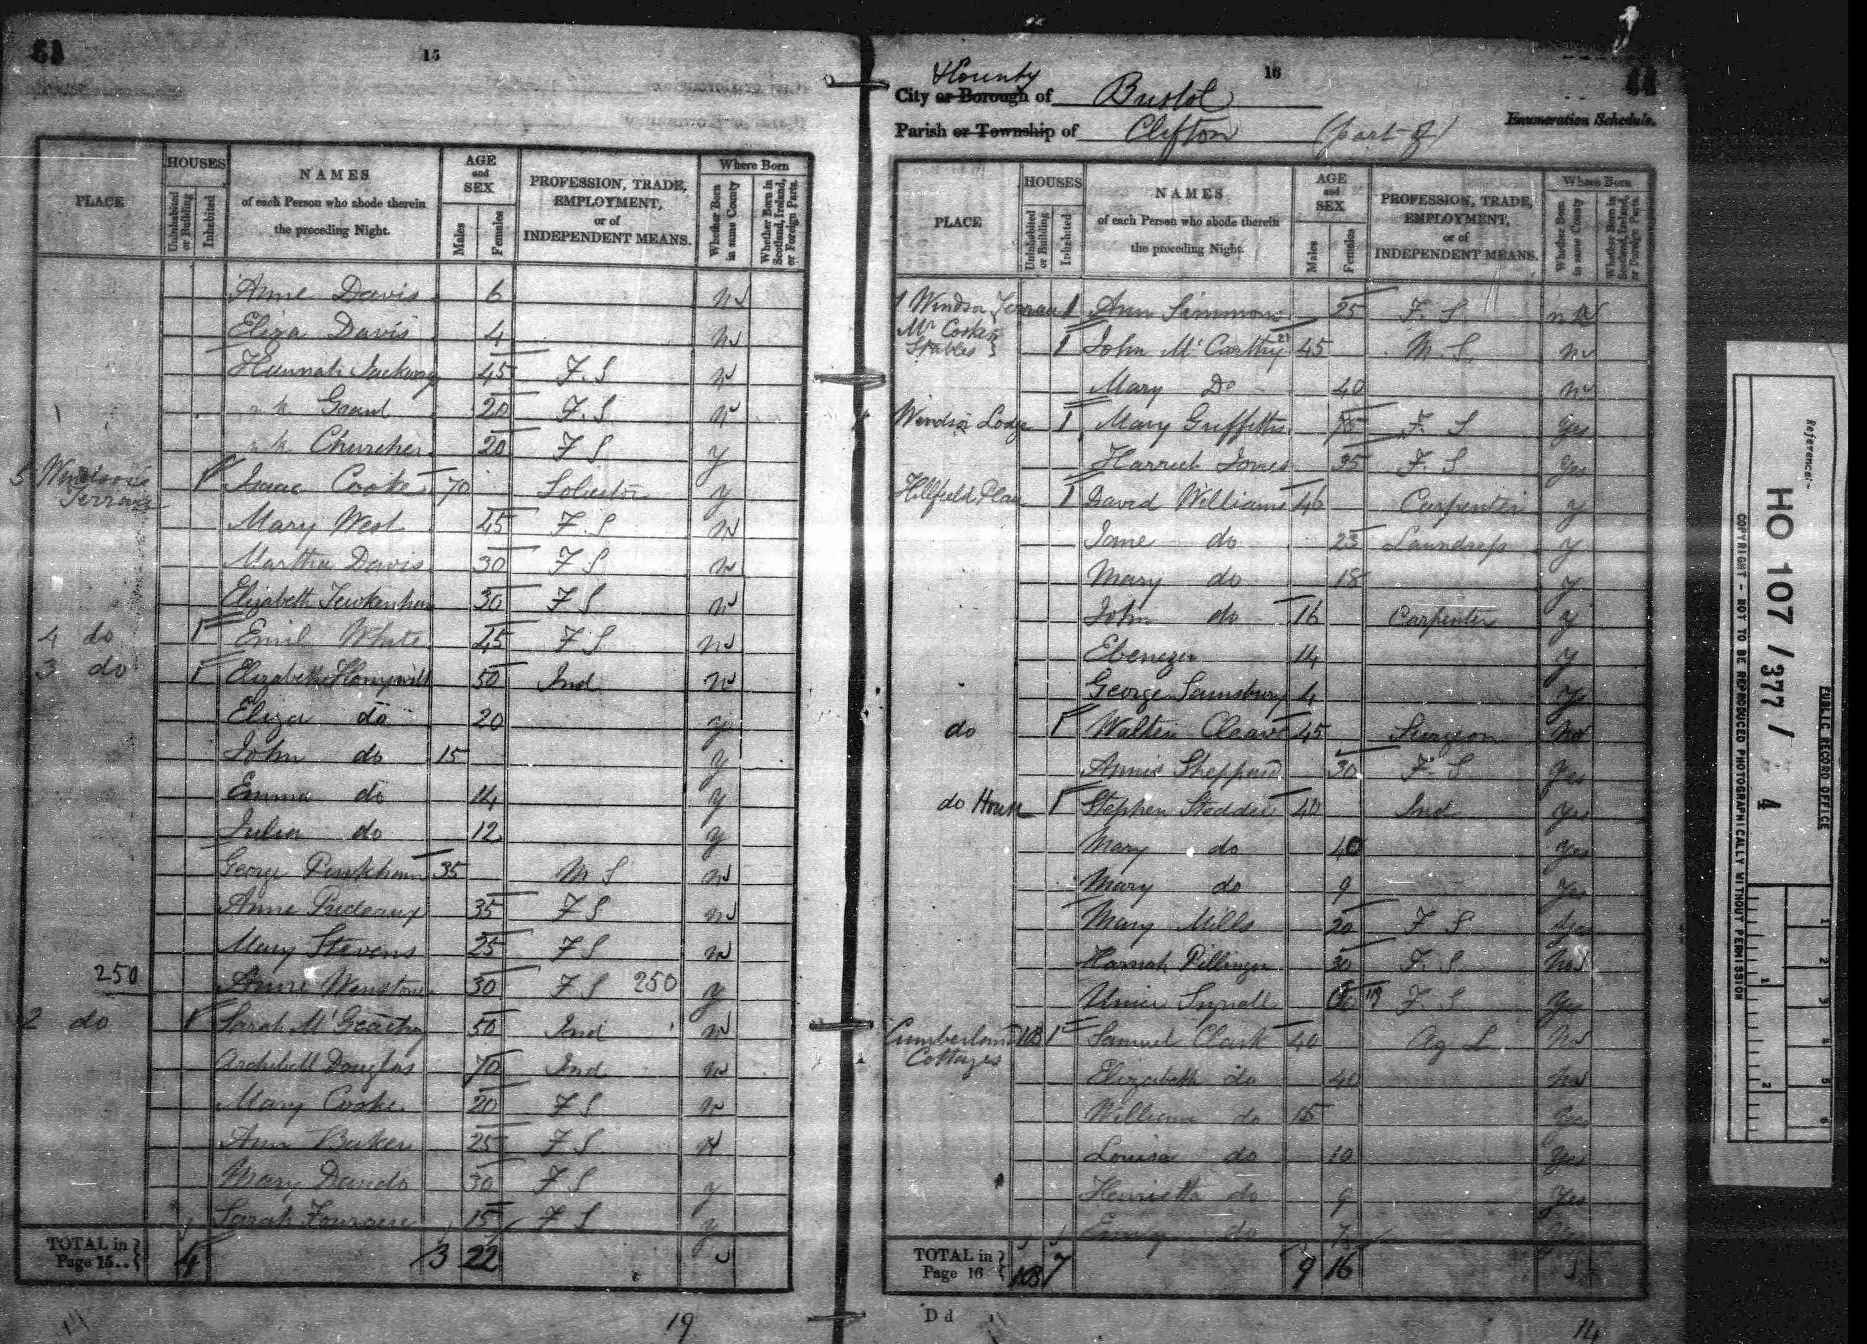 61
15
PLACE
HOUSES
Uninhabited or Building
Inhabited
NAMES
of each Person who abode therein
the preceding Night.
AGE
and
SEX
Males
Females
PROFESSION, TRADE,
EMPLOYMENT,
or of
INDEPENDENT MEANS.
Where Born
Whether Born in same County
Whether Born in Scotland, Ireland, or Foreign Parts.
Anne Davis 6 N
Eliza Davis 4 N
Hannah 45 F.S N
n.k Grant 20 F.S N
n.k Churcher 20 F S y
5 Windsor Terrace 1 Isaac Cooke 70 Solicitor y
Mary West 45 F.S N
Martha Davis 30 F S N
Elizabeth 30 F S N
4 do 1 White 45 F S N
3 do 1 Elizabeth 50 Ind N
Eliza do 20 y
John do 15 y
Emma do 14 y
Julia do 12 y
George Pinkham 35 M S N
Anne Prideaux 35 F S N
Mary Stevens 25 F S N
250 Anne Winstone 30 F S 250 y
2 do 1 Sarah 50 Ind N
Archibell Douglas 70 Ind N
Mary Cooke 20 F S N
Ann Baker 25 F S N
Mary 30 F S y
Sarah 15 F S y
TOTAL in Page 15.. 4 3 22
19
16
City or Borough of
& County
Bristol
Parish or Township of Clifton (part of)
Enumeration Schedule.
PLACE
HOUSES
Uninhabited or Building
Inhabited
NAMES
of each Person who abode therein
the preceding Night.
AGE
and
SEX
Males
Females
PROFESSION, TRADE,
EMPLOYMENT,
or of
INDEPENDENT MEANS.
Where Born
Whether Born in same County
Whether Born in Scotland, Ireland, or Foreign Parts.
1 Windsor Terrace 1 Ann Simmons 25 F. S
Mr Cookes Stables 1 John McCarthy 45 M. S. N
Mary Do 40 N
Windsor Lodge 1 Mary Griffiths F. S Yes
Harriet Jones 35 F. S Yes
Hillfield Place 1 David Williams 40 Carpenter y
Jane do 25 Laundress y
Mary do 18 y
John do 16 Carpenter y
Ebenezer 14 y
George Sainsbury 4 y
do 1 Walter 45 Surgeon No
Annis Sheppard 30 F. S Yes
do House 1 Stephen 40 Ind Yes
Mary do 40 Yes
Mary do 9 Yes
Mary Mills 20 F S Yes
Hannah Pillinger 30 F. S No
F S Yes
Cumberland Cottages 1 Samuel Clark 40 Ag L No
Elizabeth do 40 No
William do 15 Yes
Louisa do 10 Yes
Henrietta do 9 Yes
do 7
TOTAL in Page 16 7 9 16
D d
14
Reference:-
HO 107 / 377 / 4
PUBLIC RECORD OFFICE
COPYRIGHT - NOT TO BE REPRODUCED PHOTOGRAPHICALLY WITHOUT PERMISSION